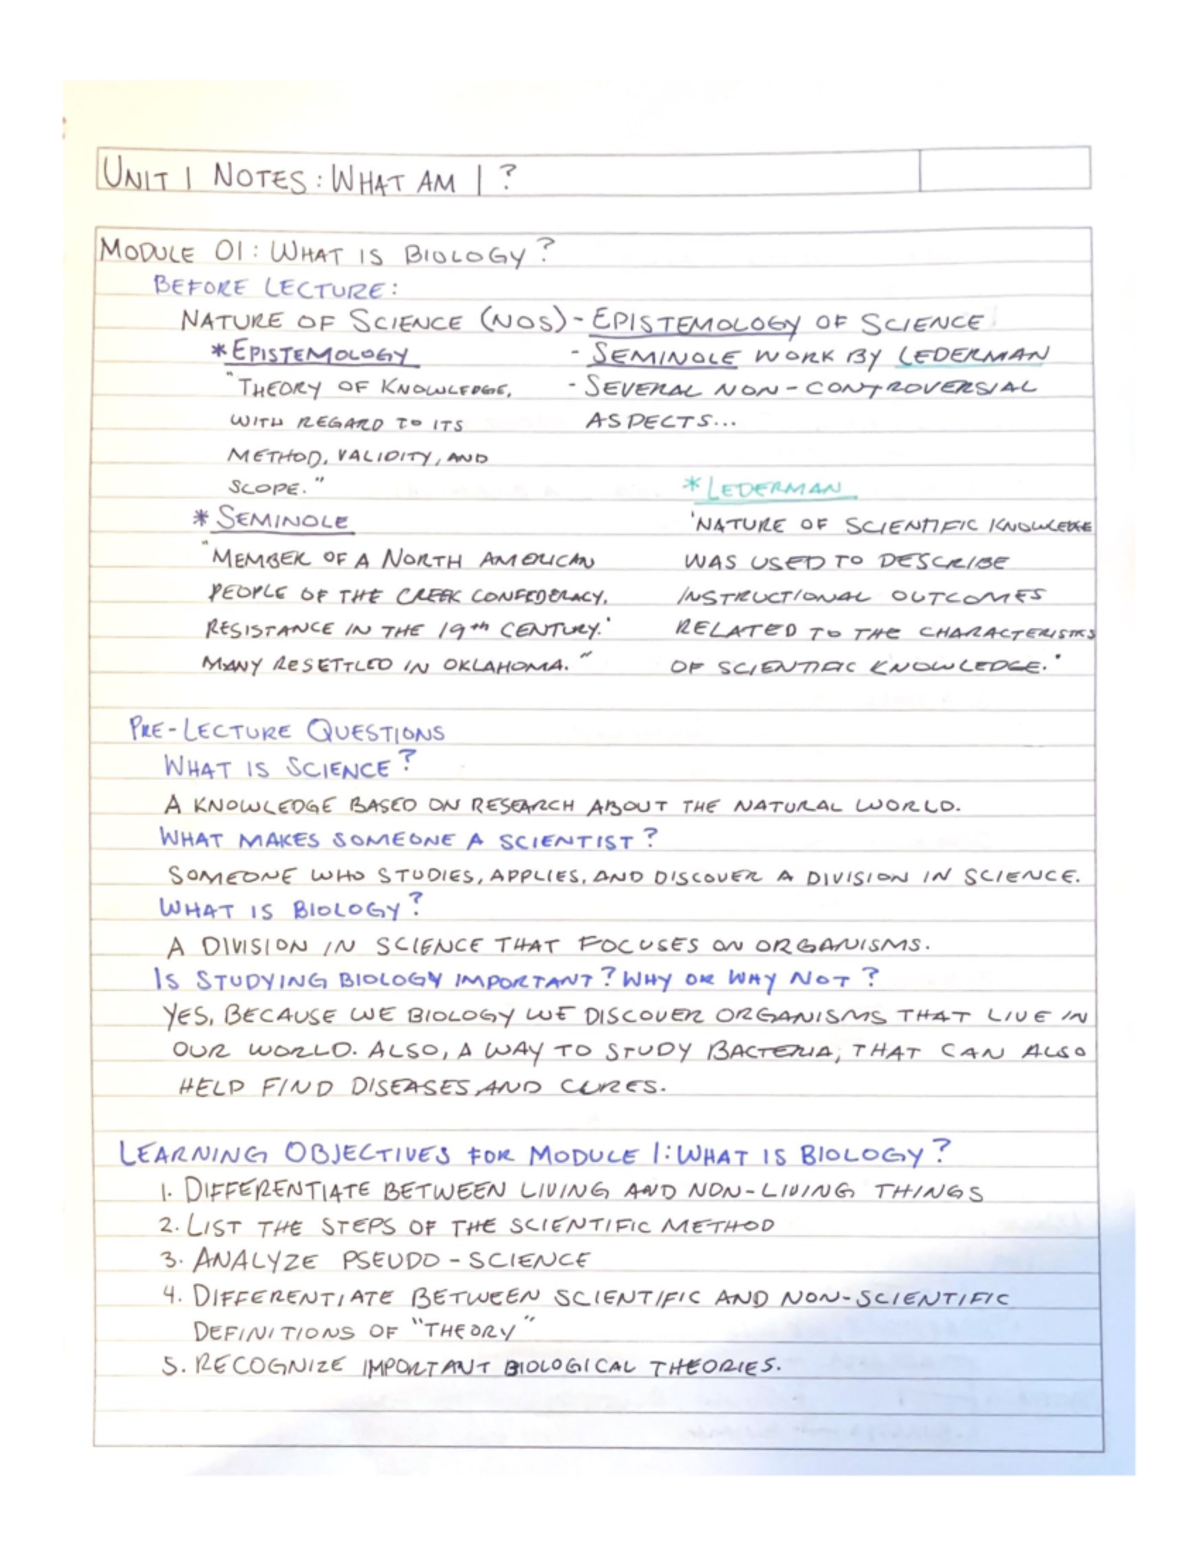 UNIT 1 NOTES: WHAT AM I?
MODULE 01: WHAT IS BIOLOGY?
BEFORE LECTURE:
NATURE OF SCIENCE (NOS) - EPISTEMOLOGY OF SCIENCE
* EPISTEMOLOGY
"THEORY OF KNOWLEDGE,
WITH REGARD TO ITS
METHOD, VALIDITY, AND
SCOPE."
- SEMINOLE WORK BY LEDERMAN
- SEVERAL NON-CONTROVERSIAL
ASPECTS...
* SEMINOLE
"MEMBER OF A NORTH AMERICAN
PEOPLE OF THE CREEK CONFEDERACY.
RESISTANCE IN THE 19th CENTURY.'
MANY RESETTLED IN OKLAHOMA."
* LEDERMAN
'NATURE OF SCIENTIFIC KNOWLEDGE
WAS USED TO DESCRIBE
INSTRUCTIONAL OUTCOMES
RELATED TO THE CHARACTERISTICS
OF SCIENTIFIC KNOWLEDGE.'
PRE-LECTURE QUESTIONS
WHAT IS SCIENCE?
A KNOWLEDGE BASED ON RESEARCH ABOUT THE NATURAL WORLD.
WHAT MAKES SOMEONE A SCIENTIST?
SOMEONE WHO STUDIES, APPLIES, AND DISCOVER A DIVISION IN SCIENCE.
WHAT IS BIOLOGY?
A DIVISION IN SCIENCE THAT FOCUSES ON ORGANISMS.
IS STUDYING BIOLOGY IMPORTANT? WHY OR WHY NOT?
YES, BECAUSE WE BIOLOGY WE DISCOVER ORGANISMS THAT LIVE IN
OUR WORLD. ALSO, A WAY TO STUDY BACTERIA, THAT CAN ALSO
HELP FIND DISEASES, AND CURES.
LEARNING OBJECTIVES FOR MODULE 1: WHAT IS BIOLOGY?
1. DIFFERENTIATE BETWEEN LIVING AND NON-LIVING THINGS
2. LIST THE STEPS OF THE SCIENTIFIC METHOD
3. ANALYZE PSEUDO-SCIENCE
4. DIFFERENTIATE BETWEEN SCIENTIFIC AND NON-SCIENTIFIC
DEFINITIONS OF "THEORY"
5. RECOGNIZE IMPORTANT BIOLOGICAL THEORIES.